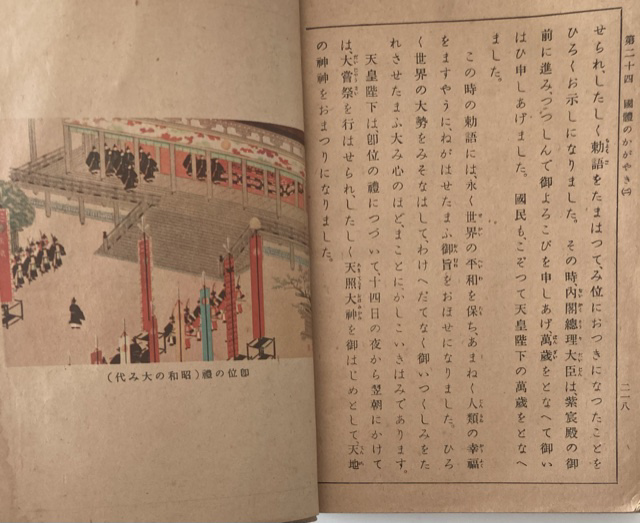 第二十四 國體のかがやき(二)
二一八
せられ、したしく勅語をたまはつて、み位におつきになつたことを
ひろくお示しになりました。その時內閣總理大臣は、紫宸殿の御
前に進み、つつしんで御よろこびを申しあげ、萬歲をとなへて御い
はひ申しあげました。國民も、こぞつて天皇陛下の萬歲をとなへ
ました。
この時の勅語には、永く世界の平和を保ち、あまねく人類の幸福
をますやうに、ねがはせたまふ御旨をおほせになりました。ひろ
く世界の大勢をみそなはして、わけへだてなく御いつくしみをた
れさせたまふ大み心のほど、まことに、かしこいきはみであります。
天皇陛下は、卽位の禮につづいて、十四日の夜から翌朝にかけて
は、大嘗祭を行はせられ、したしく天照大神を御はじめとして、天地
の神神をおまつりになりました。
卽位の禮(昭和の大み代)